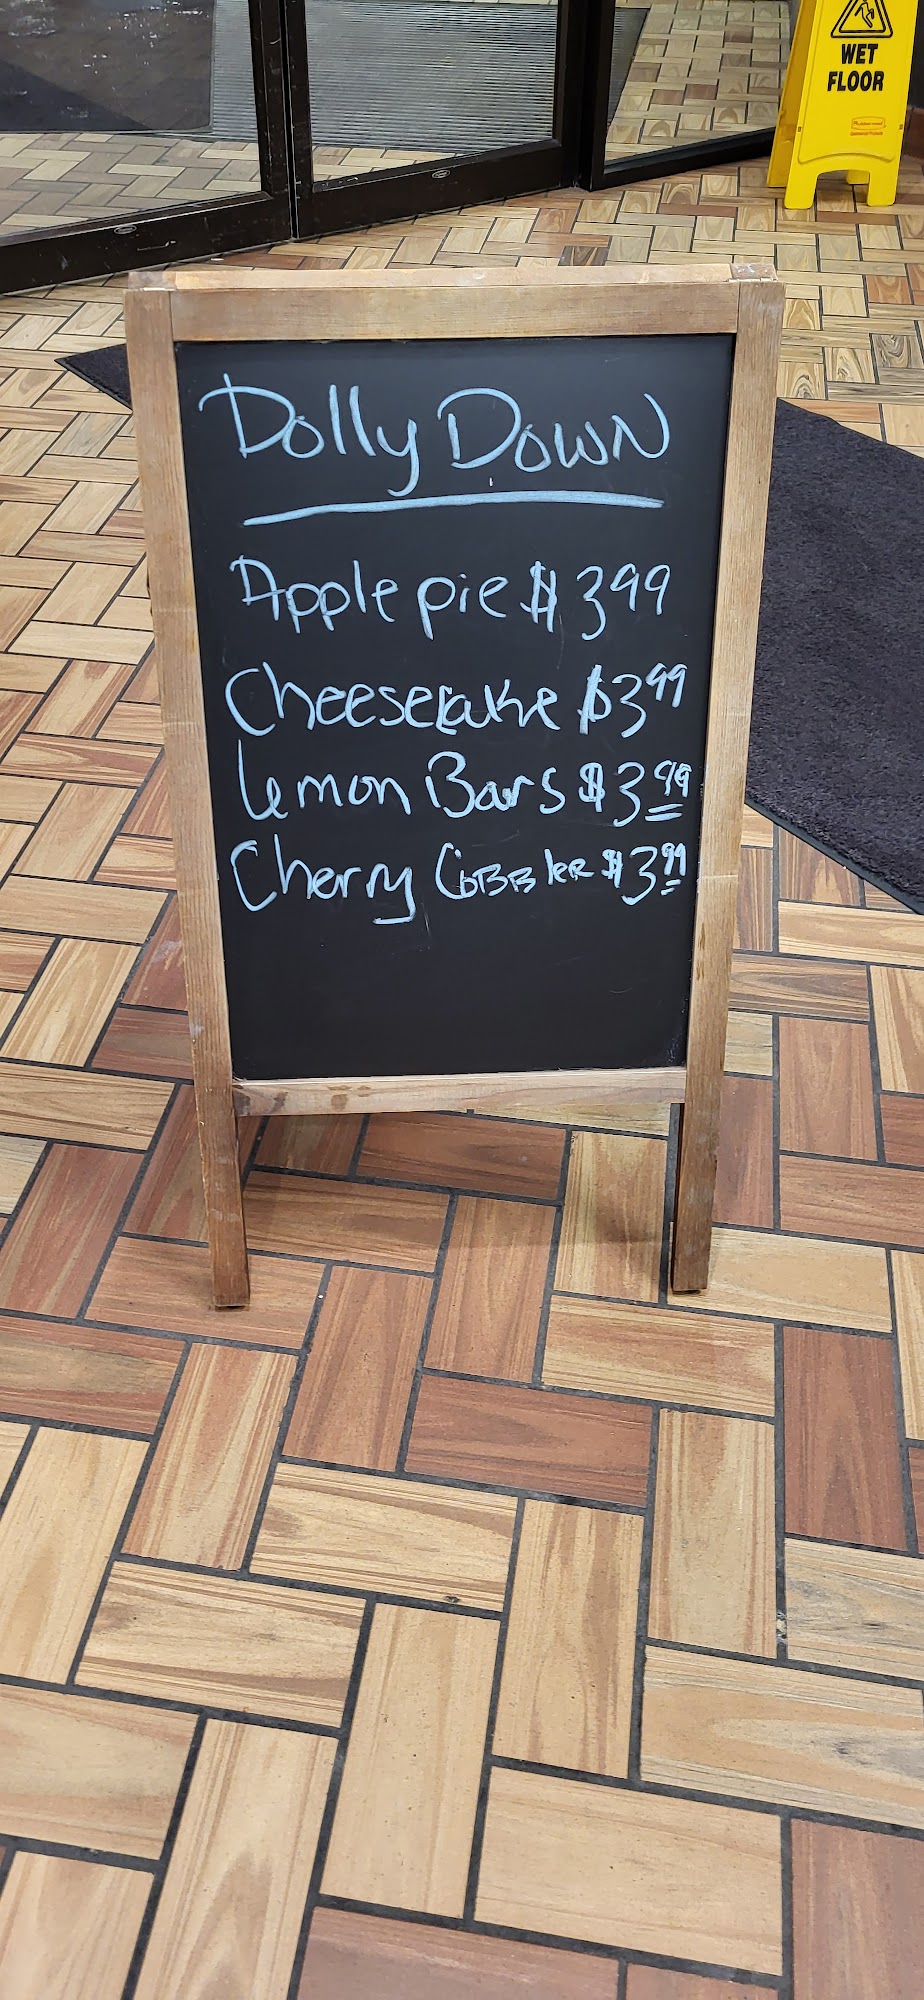 WET
FLOOR
Dolly Down
Apple pie $3.99
Cheesecake $3.99
Lemon Bars $3.99
Cherry Cobbler $3.99